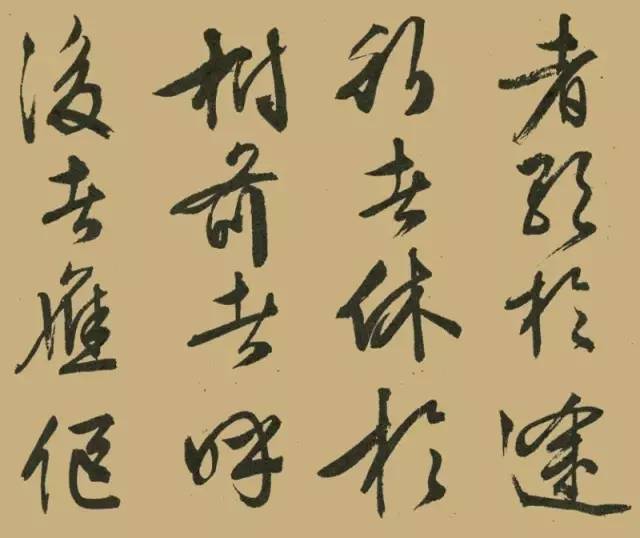 者歌於途
行者休於
樹前者呼
後者應傴